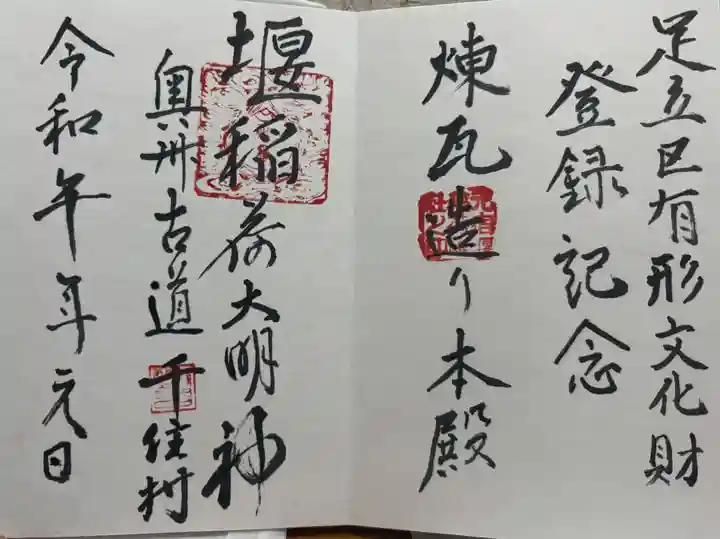 足立区有形文化財
登録記念
煉瓦造り本殿
堰稲荷大明神
奥州古道千住村
令和午年元日